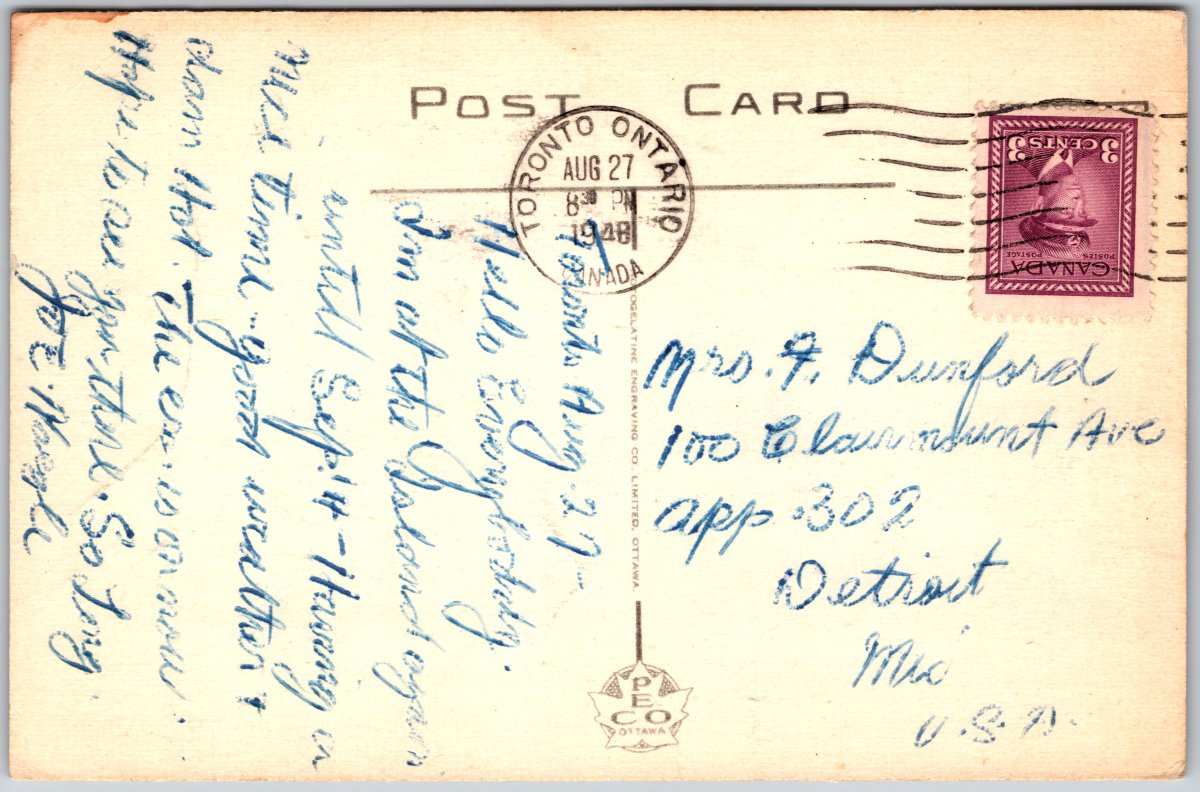 POST CARD
TORONTO ONTARIO
AUG 27
8 30 PM
1948
CANADA
3 CENTS 3
POSTES POSTAGE
CANADA
Toronto Aug. 27
Hello Everybody.
I'm at the Island again
until Sep. 14 - Having a
nice time - good weather &
damn Hot. The ex. is on now.
Hope to see you there. So Long
Joe
Mrs. F. Dunford
100 Clairmount Ave
app 302
Detroit
Mic
U.S.A.
PHOTOGELATINE ENGRAVING CO. LIMITED, OTTAWA
PECO
OTTAWA